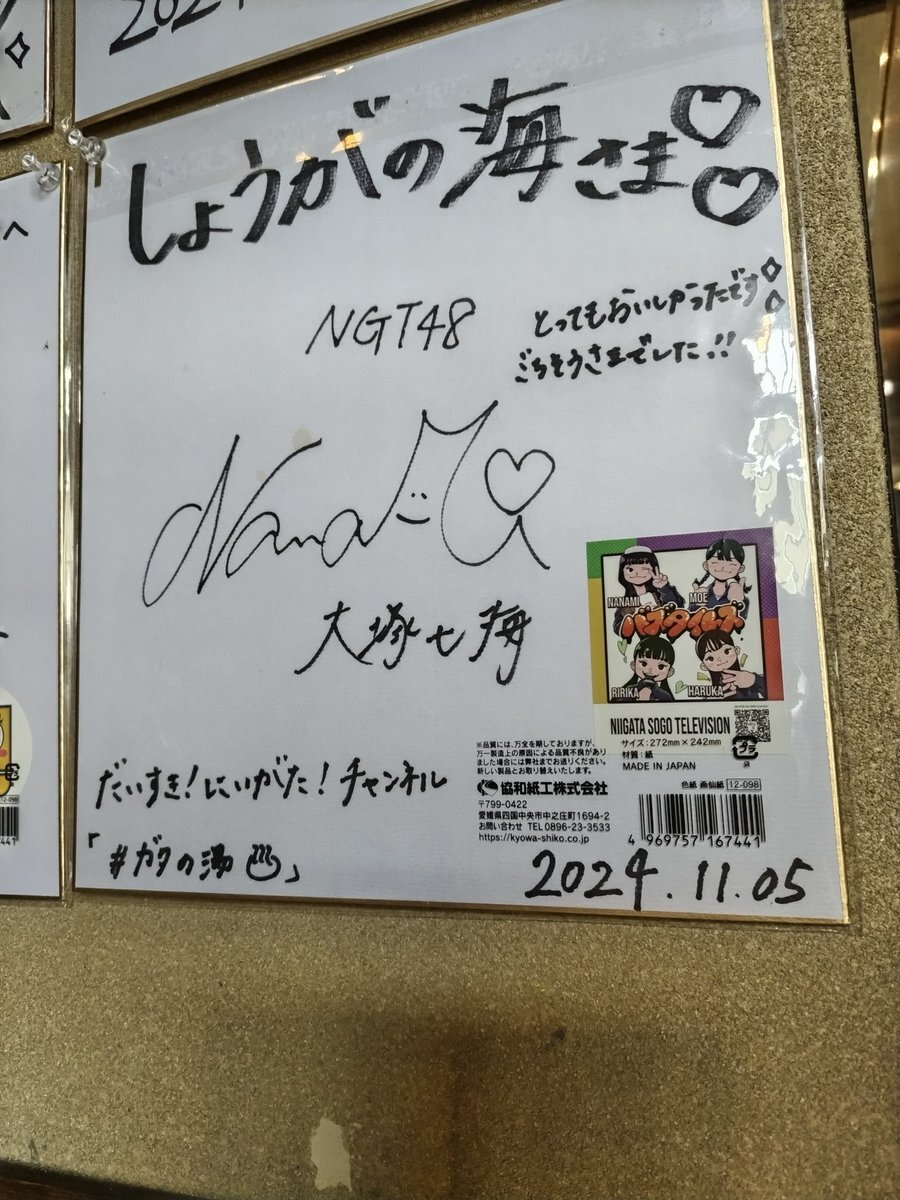 2024
へ
しょうがの海さま♡♡
NGT48
とってもおいしかったです
ごちそうさまでした!!
大塚七海
NANAMI
MOE
バズタイムズ
RIRIKA
HARUKA
NIIGATA SOGO TELEVISION
サイズ:272mm×242mm
材質:紙
MADE IN JAPAN
プラ
紙
※品質には、万全を期しておりますが、
万一製造上の原因による品質不良があり
ました場合には弊社までお送りください。
新しい製品とお取り替えいたします。
協和紙工株式会社
〒799-0422
愛媛県四国中央市中之庄町1694-2
お問い合わせ TEL0896-23-3533
https://kyowa-shiko.co.jp
色紙 画仙紙 12-098
4 969757 167441
だいすき!にいがた!チャンネル
「#ガタの湯♨」
2024.11.05
12-098
441